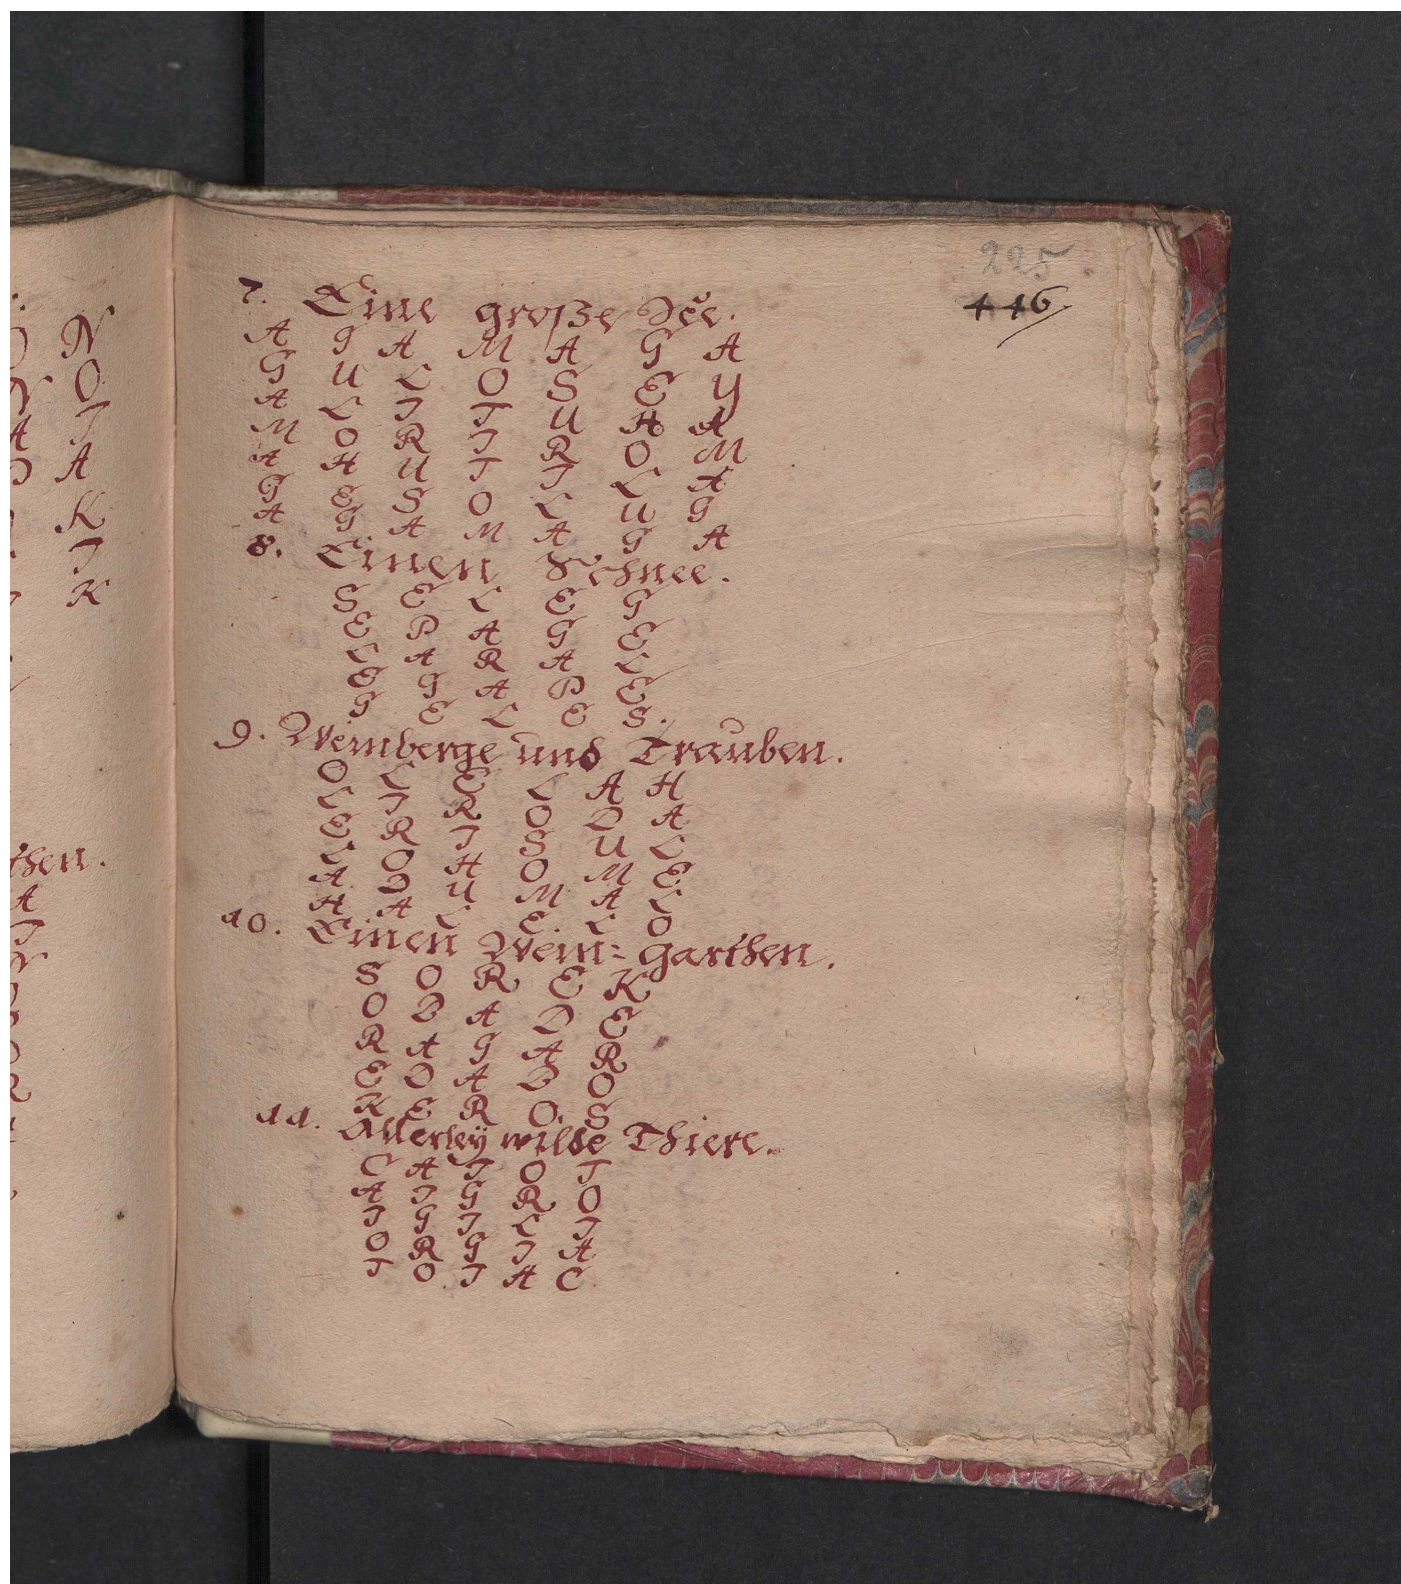 N
N O
A T
A
K
I
K
then.
A
225.
446
7. Eine große See.
A G A M A G A
G U L O S E Y
A L I T U H A
M O R I R O M
A H U T I L A
G E S O L U G
A G A M A G A
8. Einen Schnee.
S E L E G
E P A G E
L A R A L
E G A P E
G E L E S.
9. Weinberge und Trauben.
O L E L A H
L I R O D A
E R I S U L
L O H O M E
A D U M A L
H A L E L O
10. Einen Wein=Garthen.
S O R E K
O B A D E
R A G A R
E D A B O
K E R O S
11. Allerleÿ wilde Thiere.
C A I O T
A I G R O
I G I L I
O R G I A
T O I A C